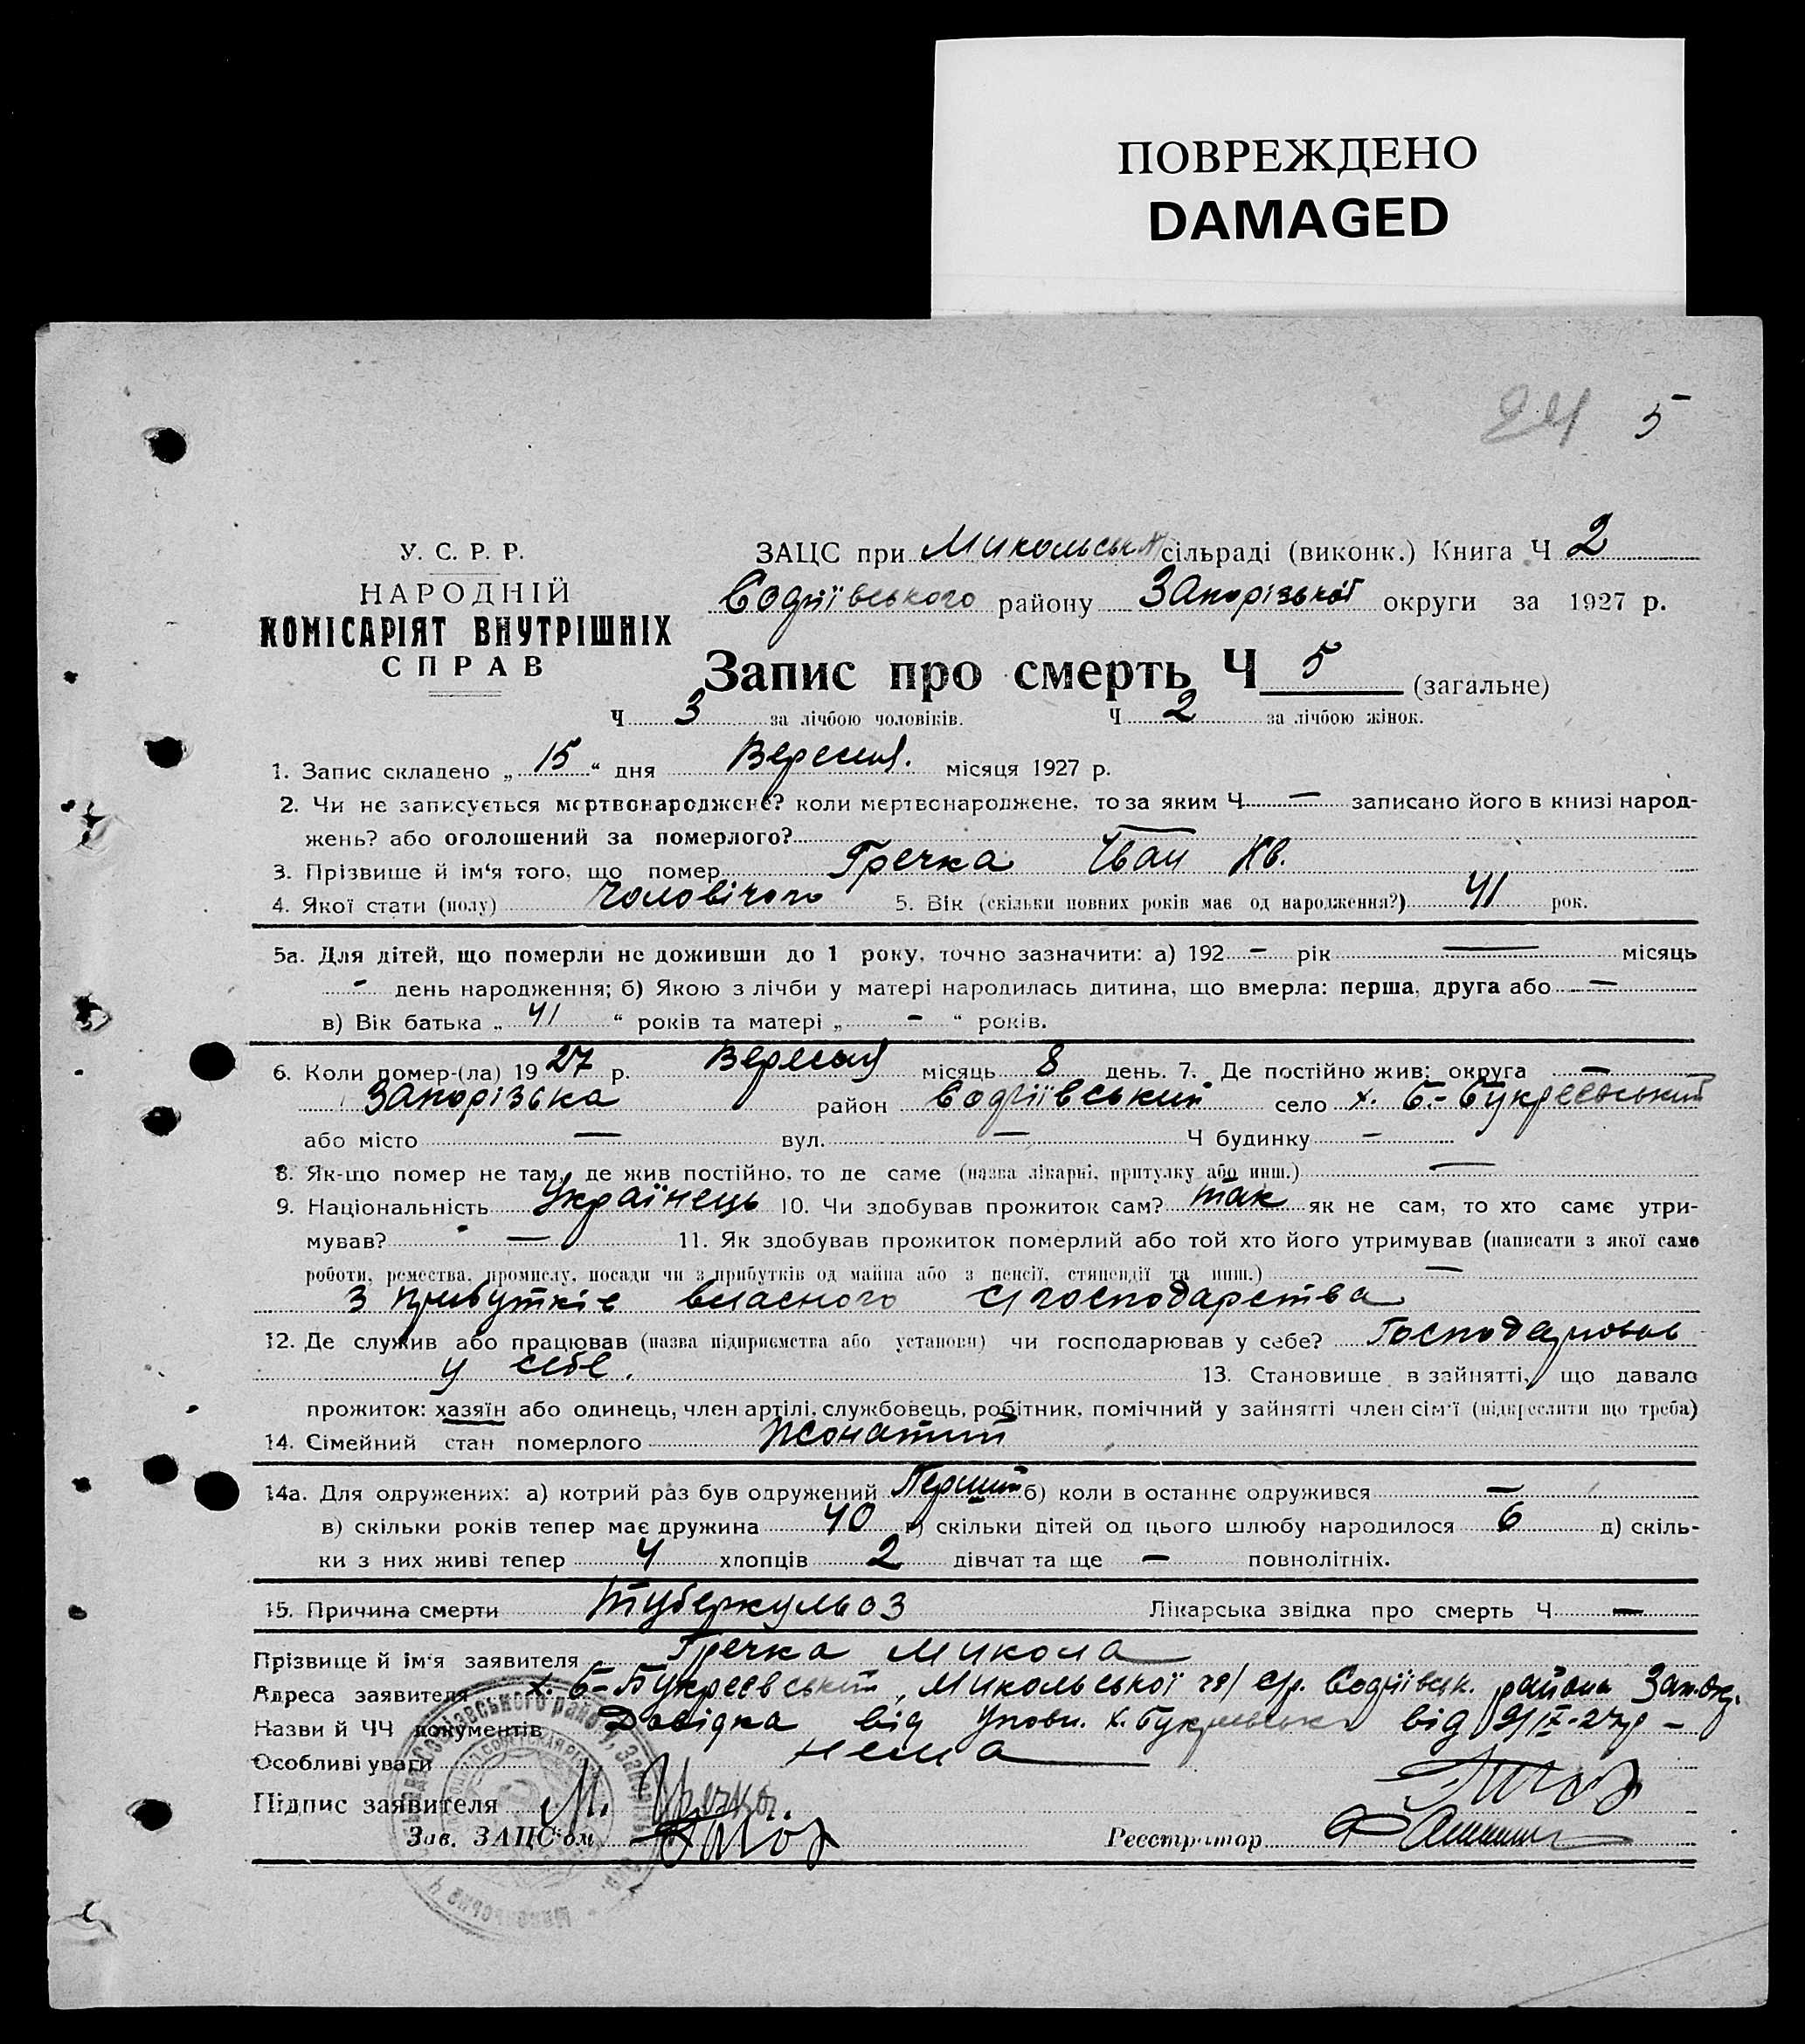 ПОВРЕЖДЕНО
DAMAGED
24 5
У. С. Р. Р.
НАРОДНІЙ
КОМІСАРІЯТ ВНУТРІШНІХ
СПРАВ
ЗАЦС при Микольськ сільраді (виконк.) Книга Ч 2
Софіївського району Запорізької округи за 1927 р.
Запис про смерть Ч 5 (загальне)
Ч 3 за лічбою чоловіків. Ч 2 за лічбою жінок.
1. Запис складено „ 15 “ дня Вересня. місяця 1927 р.
2. Чи не записується мертвонароджене? коли мертвонароджене, то за яким Ч — записано його в книзі народ-
жень? або оголошений за померлого? —
3. Прізвище й ім‘я того, що помер Гречка Іван Кв.
4. Якої стати (полу) Чоловічого 5. Вік (скільки повних років має од народження?) 41 рок.
5а. Для дітей, що померли не доживши до 1 року, точно зазначити: а) 192 – рік — місяць
– день народження; б) Якою з лічби у матері народилась дитина, що вмерла: перша, друга або —
в) Вік батька „ 41 “ років та матері „ – “ років.
6. Коли помер-(ла) 1927 р. Вересня місяць 8 день. 7. Де постійно жив: округа —
Запорізька район Софіївський село х. Б.-Букреєвський
або місто — вул. — Ч будинку –
8. Як-що помер не там, де жив постійно, то де саме (назва лікарні, притулку або инш.) —
9. Національність Українець 10. Чи здобував прожиток сам? так як не сам, то хто саме утри-
мував? — 11. Як здобував прожиток померлий або той хто його утримував (написати з якої само
роботи, ремества, промислу, посади чи з прибутків од майна або з пенсії, стипендії та инш.) —
З прибутків власного с/господарства
12. Де служив або працював (назва підприємства або установи) чи господарював у себе? Господарював
у себе. 13. Становище в зайнятті, що давало
прожиток: хазяїн або одинець, член артілі, службовець, робітник, помічний у зайнятті член сім‘ї (підкреслити що треба)
14. Сімейний стан померлого Жонатий
14а. Для одружених: а) котрий раз був одружений Перший б) коли в останнє одружився —
в) скільки років тепер має дружина 40 г) скільки дітей од цього шлюбу народилося 6 д) скіль-
ки з них живі тепер 4 хлопців 2 дівчат та ще — повнолітніх.
15. Причина смерти Туберкульоз Лікарська звідка про смерть Ч —
Прізвище й ім‘я заявителя Гречка Микола
Адреса заявителя х. Б-Букреєвський, Микольської с/р. Софіївськ. района Зап.окр.
Назви й ЧЧ документів Довідка від Уповн. х. від 9/IX-27р –
Особливі уваги нема
Підпис заявителя М. Гречка.
Зав. ЗАЦС'ом Реєстратор